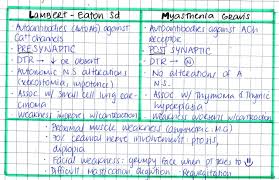 LAMBERT - EATON Sd
Autoantibodies (AutoAb) against
Ca++ channels
· PRESYNAPTIC
· DTR → ↓ be absent
· Autonomic N.S alterations
(xerostomias, impotence)
· Assoc w/ Small cell lung car-
cinoma
weakness improve w/contraction
Myasthenia Gravis
· Autoantibodies against ACh
Receptor
· POST SYNAPTIC
· DTR → N
· No alterations of A
N.S.
· Assoc w/ Thymoma & Thymic
hyperplasia
weakness worsens w/contraction
· Proximal muscle weakness (asymmetric M.G)
· 70% cranial nerve involvement: ptosis,
diplopia
· Facial weakness: grumpy face when pt tries to
· Difficult Mastication Regurgitation